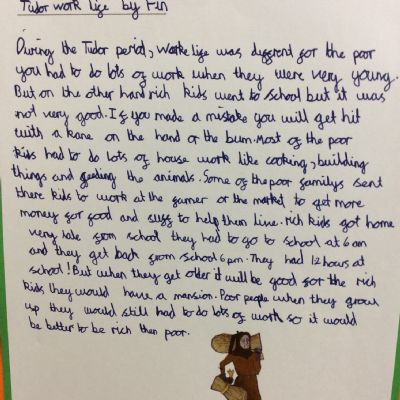 Tudor work life by Fin
During the Tudor period, worke life was different for the poor
you had to do lots of work when they were very young.
But on the other hand rich kids went to school but it was
not very good. If you made a mistake you will get hit
with a kane on the hand or the bum. Most of the poor
kids had to do lots of house work like cooking, building
things and feeding the animals. Some of the poor familys sent
there kids to work at the farmer or the market, to get more
money for food and suff to help them live. rich kids got home
very late from school they had to go to school at 6am
and they get back from school 6pm. They had 12 hours at
school! But when they get older it will be good for the rich
kids they would have a mansion. Poor people when they grow
up they would still had to do lots of work so it would
be better to be rich then poor.